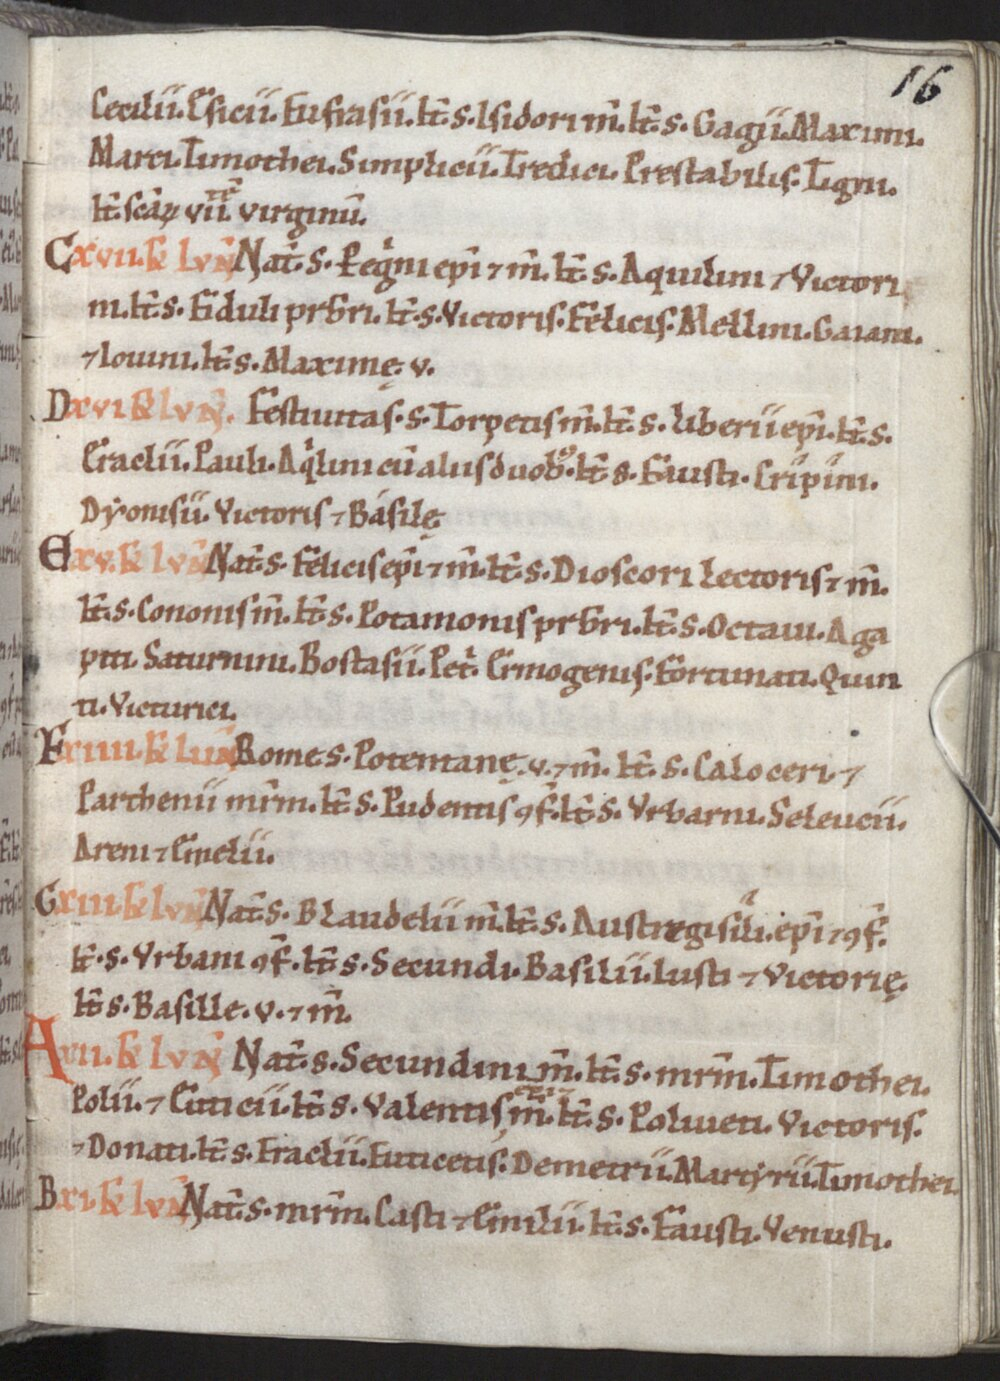 16
Cecilii. Esicii. Eufrasii. Iƚē s. Isidori m̄. Iƚē s. Gagii. Maximi.
Marci. Timothei. Simplicii. Tredici. Prestabilis. Ligni.
Iƚē scāꝝ vii virginū.
C xvii. kƚ Ivn̄ Nat̄. s. Pegͥni ep̄i ⁊ m̄. Iƚē s. Aquilini ⁊ Victori
ni. Iƚē s. Eiduli prƀri. Iƚē s. Victoris. Felicis. Mellini. Gaiani.
⁊ Iouini. Iƚē s. Maximę. v.
D xvi kƚ Ivn̄. Festiuitas. s. Torpetis m̄. Iƚē s. Liberii ep̄i. Iƚē s.
Eraclii. Pauli. Aqͥlini cū aliis duobꝰ. Iƚē s. Fausti. Crͥpͥini.
Dẏonisii. Victoris ⁊ Basilę
E xv. kƚ Ivn̄ Nat̄. s. Felicis ep̄i ⁊ m̄. Iƚē s. Dioscori lectoris ⁊ m̄.
Iƚē s. Cononis m̄. Iƚē s. Potamonis prƀri. Iƚē s. Octaui. Aga
piti. Saturnini. Bostasii. Pet̄. Ermogenis. Fortunati. Quin
ti. Victurici.
F xiiii. kƚ Iun̄ Rome s. Potentianę. v. ⁊ m̄. Iƚē s. Caloceri ⁊
Parthenii mr̄m. Iƚē s. Pudentis ꝯf. Iƚē s. Vrbarni. Seleucii.
Areni ⁊ Cinelii.
G xiii. kƚ Ivn̄ Nat̄. s. Blaudelii m̄. Iƚē s. Austregisili. ep̄i ⁊ ꝯf.
Iƚē. s. Vrbani ꝯf. Iƚē s. Secundi. Basilii. Iusti ⁊ Victorię.
Iƚē s. Basille. v. ⁊ m̄.
A xii. kƚ Ivn̄ Nat̄. s. Secundini m̄. Iƚē s. mr̄m. Timothei.
Polii. ⁊ Euticii. Iƚē s. Valentis m̄. Iƚē s. Poliueti. Victoris.
⁊ Donati. Iƚē s. Eraclii. Euticetis. Demetrii. Martẏrii. Timothei.
B xi. kƚ Ivn̄ Nat̄. s. mr̄m. Casti ⁊ Emilii. Iƚē s. Fausti. Venusti.